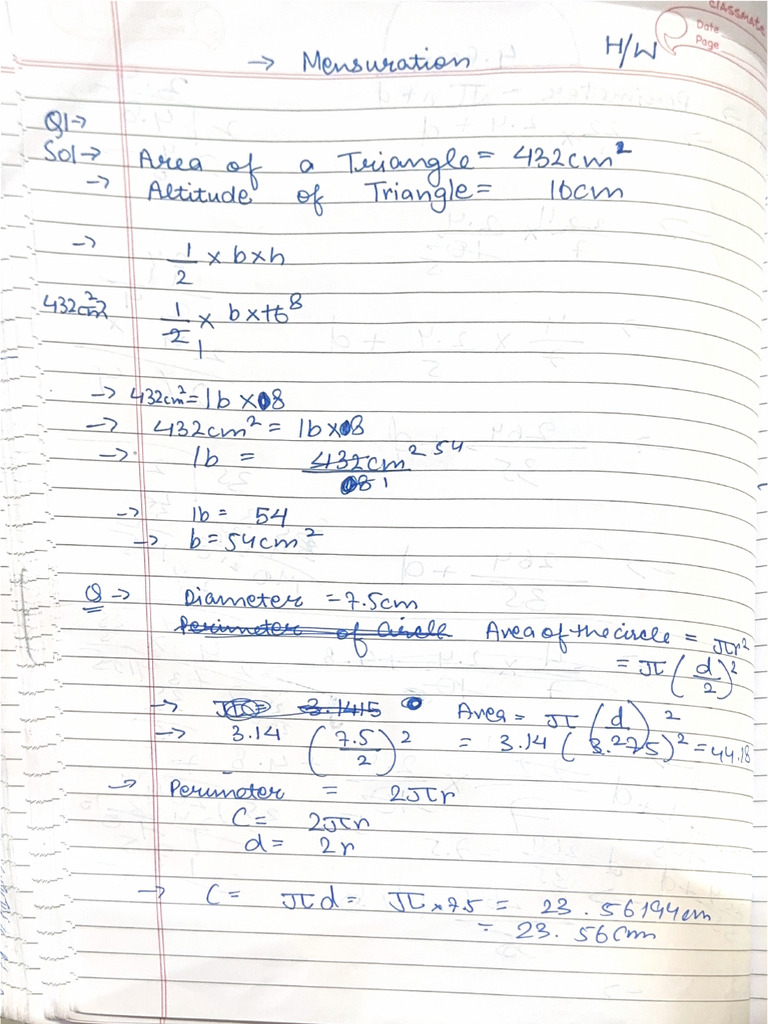 classmate
Date
Page
H/W
→ Mensuration
Q1→
Sol→ Area of a Triangle = 432cm²
→ Altitude of Triangle = 16cm
→ 1/2 × b × h
432cm² 1/2 × b × 16 8
1
→ 432cm² = 1b × 08
→ 432cm² = 1b × 08
→ 1b = 432cm² 54 / 08 1
→ 1b = 54
→ b = 54cm²
Q → Diameter = 7.5cm
Perimeter of Circle Area of the circle = πr²
= π (d/2)²
→ 3.1415 Area = π (d/2)²
→ 3.14 (7.5/2)² = 3.14 (3.275)² = 44.18
→ Perimeter = 2πr
C = 2πr
d = 2r
→ C = πd = π × 7.5 = 23.56194cm
= 23.56cm